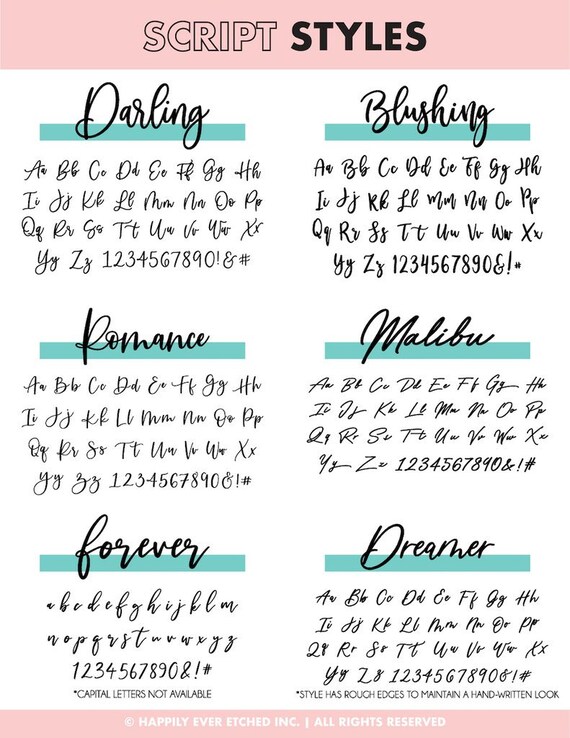 SCRIPT STYLES
Darling
Aa Bb Cc Dd Ee Ff Gg Hh
Ii Jj Kk Ll Mm Nn Oo Pp
Qq Rr Ss Tt Uu Vv Ww Xx
Yy Zz 1234567890!&#
Blushing
Aa Bb Cc Dd Ee Ff Gg Hh
Ii Jj Kk Ll Mm Nn Oo Pp
Qq Rr Ss Tt Uu Vv Ww Xx
Yy Zz 1234567890&!#
Romance
Aa Bb Cc Dd Ee Ff Gg Hh
Ii Jj Kk Ll Mm Nn Oo Pp
Qq Rr Ss Tt Uu Vv Ww Xx
Yy Zz 1234567890&!#
Malibu
Aa Bb Cc Dd Ee Ff Gg Hh
Ii Jj Kk Ll Mm Nn Oo Pp
Qq Rr Ss Tt Uu Vv Ww Xx
Yy Zz 1234567890&!#
forever
a b c d e f g h i j k l m
n o p q r s t u v w x y z
1234567890&!#
*CAPITAL LETTERS NOT AVAILABLE
Dreamer
Aa Bb Cc Dd Ee Ff Gg Hh
Ii Jj Kk Ll Mm Nn Oo Pp
Qq Rr Ss Tt Uu Vv Ww Xx
Yy Zz 1234567890&!#
*STYLE HAS ROUGH EDGES TO MAINTAIN A HAND-WRITTEN LOOK
© HAPPILY EVER ETCHED INC. | ALL RIGHTS RESERVED